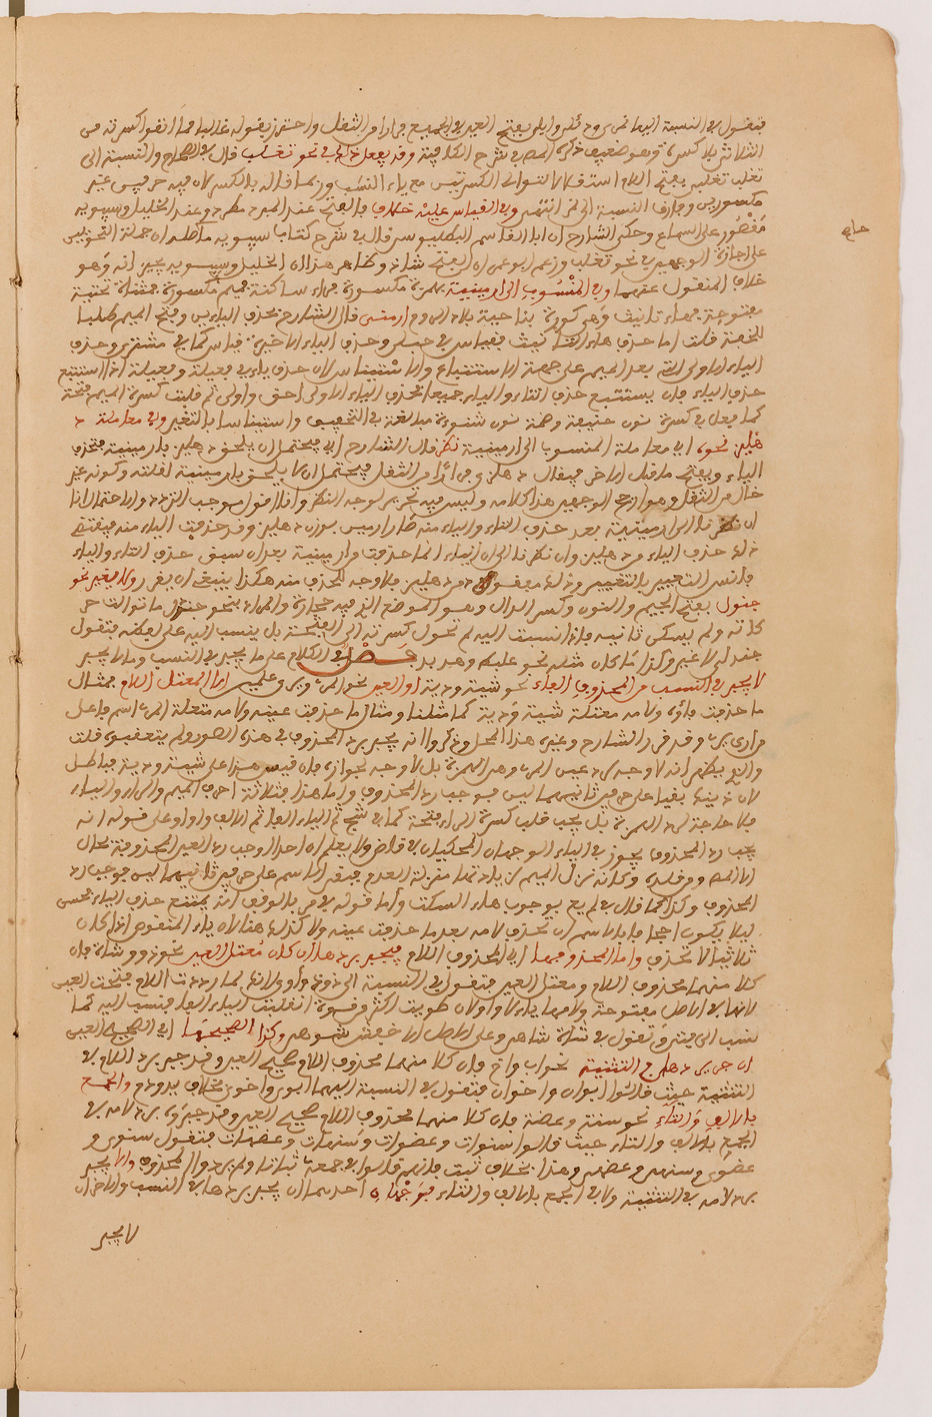 فتقول في النسبة اليها نمري ودؤلي وابلي بفتح العين في الجميع فرارا من الثقل واحترز بقوله غالبا مما
الثلاثي بلا كسرة وهو ضعيف ذكره المص في شرح الكافية وقد يفعل ذلك في نحو تغلب قال في الصحاح والنسبة الى
تغلب تغلبي بفتح اللام استقالا لتوالي الكسرتين مع ياء النسب وربما قالوه بالكسر لان فيه حرفين غير
مكسورين وفارق النسبة الى نمر انتهى وفي القياس عليه خلاف فالفتح عند المبرد مطرد وعند الخليل وسيبويه
مقصور على السماع وحكى الشارح ان ابا القاسم البطليوسي قال في شرح كتاب سيبويه ما ان جملة النحويين
على اجازة الوجهين في نحو تغلب وزعم ابو ان الفتح شاذ وظاهر هذا ان الخليل وسيبويه يجيزانه وهو
خلاف المنقول عنهما وفي المنسوب الى ارمينية بهمزة مكسورة فراء ساكنة فميم مكسورة فمثناة تحتية
مفتوحة فهاء تانيث وهي كورة بناحية بلاد الروم ارمني قال الشارح بحذف الياءين وفتح الميم طلبا
للخفة قلت اما حذف هاء التانيث فقياس وحذف الياء الاخيرة قياس كما في مشتري وحذف
الياء الاولى التي بعد الميم على جهة الاستتباع والاستيناس لان حذف ياء فعيلة وفعيلة اذا استتبع
حذف الياء فان يستتبع حذف التاء والياء جميعا بحذف الياء الاولى احق واولى ثم قلبت كسرة الميم فتحة
كما فعل في كسرة نون حنيفة وضمة نون شنوءة مبالغة في التخفيف واستيناسا بالتغيير وفي معاملة
دهليز نحوه اي معاملة المنسوب الى ارمينية نظر قال الشارح اي فيحتمل ان يلحق دهليز بارمينية فتحذف
الياء ويفتح ما قبل الاخر فيقال دهلزي فرارا من الثقل ويحتمل ان لا يلحق بارمينية لقلته وكونه غير
خال من الثقل وهو ارجح الوجهين هذا كلامه وليس فيه تحرير لوجه النظر وانا اقول موجب التردد والاحتمال انا
ان نظرنا الى ارمينية بعد حذف التاء والياء منه صار ارمين بوزن دهليز وقد حذفت الياء منه فيقتضي
ذلك حذف الياء من دهليز وان نظرنا الى ان الياء انما حذفت من ارمينية بعد ان سبق حذف التاء والياء
فانس التغيير بالتغيير وذلك مفقود من دهليز فلا وجه للحذف منه هكذا ينبغي ان يقرر ولا يغير نحو
جندل بفتح الجيم والنون وكسر الدال وهو الموضع الذي فيه حجارة والمراد بنحو جندل ما توالت حر
كاته ولم يسكن ثانيه فاذا نسبت اليه لم تحول كسرته الى الفتحة بل ينسب اليه على لفظه فتقول
جندلي لا غير وكذا ما كان مثله نحو علبط وهدبد فصل في الكلام على ما يجبر في النسب وما لا يجبر
لا يجبر في النسب من المحذوف الفاء نحو شية ودية او العين نحو المرء ويرى علمين الا المعتل اللام فمثال
ما حذفت فاؤه ولامه معتلة شية ودية كما مثلنا ومثال ما حذفت عينه ولامه معتلة المرء اسم فاعل
من ارى يرى وقد قرر الشارح وغيره هذا المحل وذكروا انه يجبر برد المحذوف في هذه الصور ولم يتعقبوه قلت
والذي يظهر انه لا وجه لرد عين المرء وهي الهمزة بل لا وجه لجوازه فان قيس هذا على شية ودية فباطل
لان ذينك بقيا على حرفين ثانيهما لين فوجب رد المحذوف واما هذا فثلاثة احرف الميم والراء والياء
فلا حاجة لرد الهمزة بل يجب قلب كسرة الراء فتحة كما في شج ثم الياء الفا ثم الالف واوا وعلى قوله انه
يجب رد المحذوف يجوز في الياء الوجهان المحكيان في قاض ولا يعلم ان احدا اوجب رد العين المحذوفة بحال
الا المص ومن قلده وكانه نزل الميم لزيادتها منزلة العدم فبقي الاسم على حرفين ثانيهما لين فوجب رد
المحذوف وكذا كما قال في لم يع بوجوب هاء السكت واما قوله في مر بالوقف انه يمتنع حذف الياء فحسن
ليلا يكون اجحافا بالاسم ان تحذف لامه بعد ما حذفت عينه ولا كذلك هنا لان ياء المنقوص اذا كان
ثلاثيا لا تحذف واما المحذوفها اي المحذوف اللام فيجبر بردها ان كان معتل العين نحو ذو وشاة فان
كلا منهما محذوف اللام ومعتل العين فتقول في النسبة الى ذو ذووي لانك لما رددت اللام فتحت العين
لانها في الاصل مفتوحة ولامها ياء لان باب طويت اكثر من قوة انقلبت الياء الفا فنسب اليه كما
ينسب الى فتى وتقول في شاة شاهي وعلى الاصل الاخفش شوهي وكذا الصحيحها اي الصحيح العين
ان جبر بردها في التثنية نحو اب واخ فان كلا منهما محذوف اللام صحيح العين وقد جبر برد اللام في
التثنية حيث قالوا ابوان واخوان فتقول في النسبة اليهما ابوي واخوي بخلاف يد ودم والجمع
بالالف والتاء نحو سنة وعضة فان كلا منهما محذوف اللام صحيح العين وقد جبر برد لامه في
الجمع بالالف والتاء حيث قالوا سنوات وعضوات وسنهات وعضهات فتقول سنوي و
عضوي وسنهي وعضهي وهذا بخلاف ثبة فانهم قالوا في جمعه ثبات ولم يردوا المحذوف والا يجبر
برد لامه في التثنية ولا في الجمع بالالف والتاء فوجهان احدهما ان يجبر بردها في النسب والاخر ان
لا يجبر